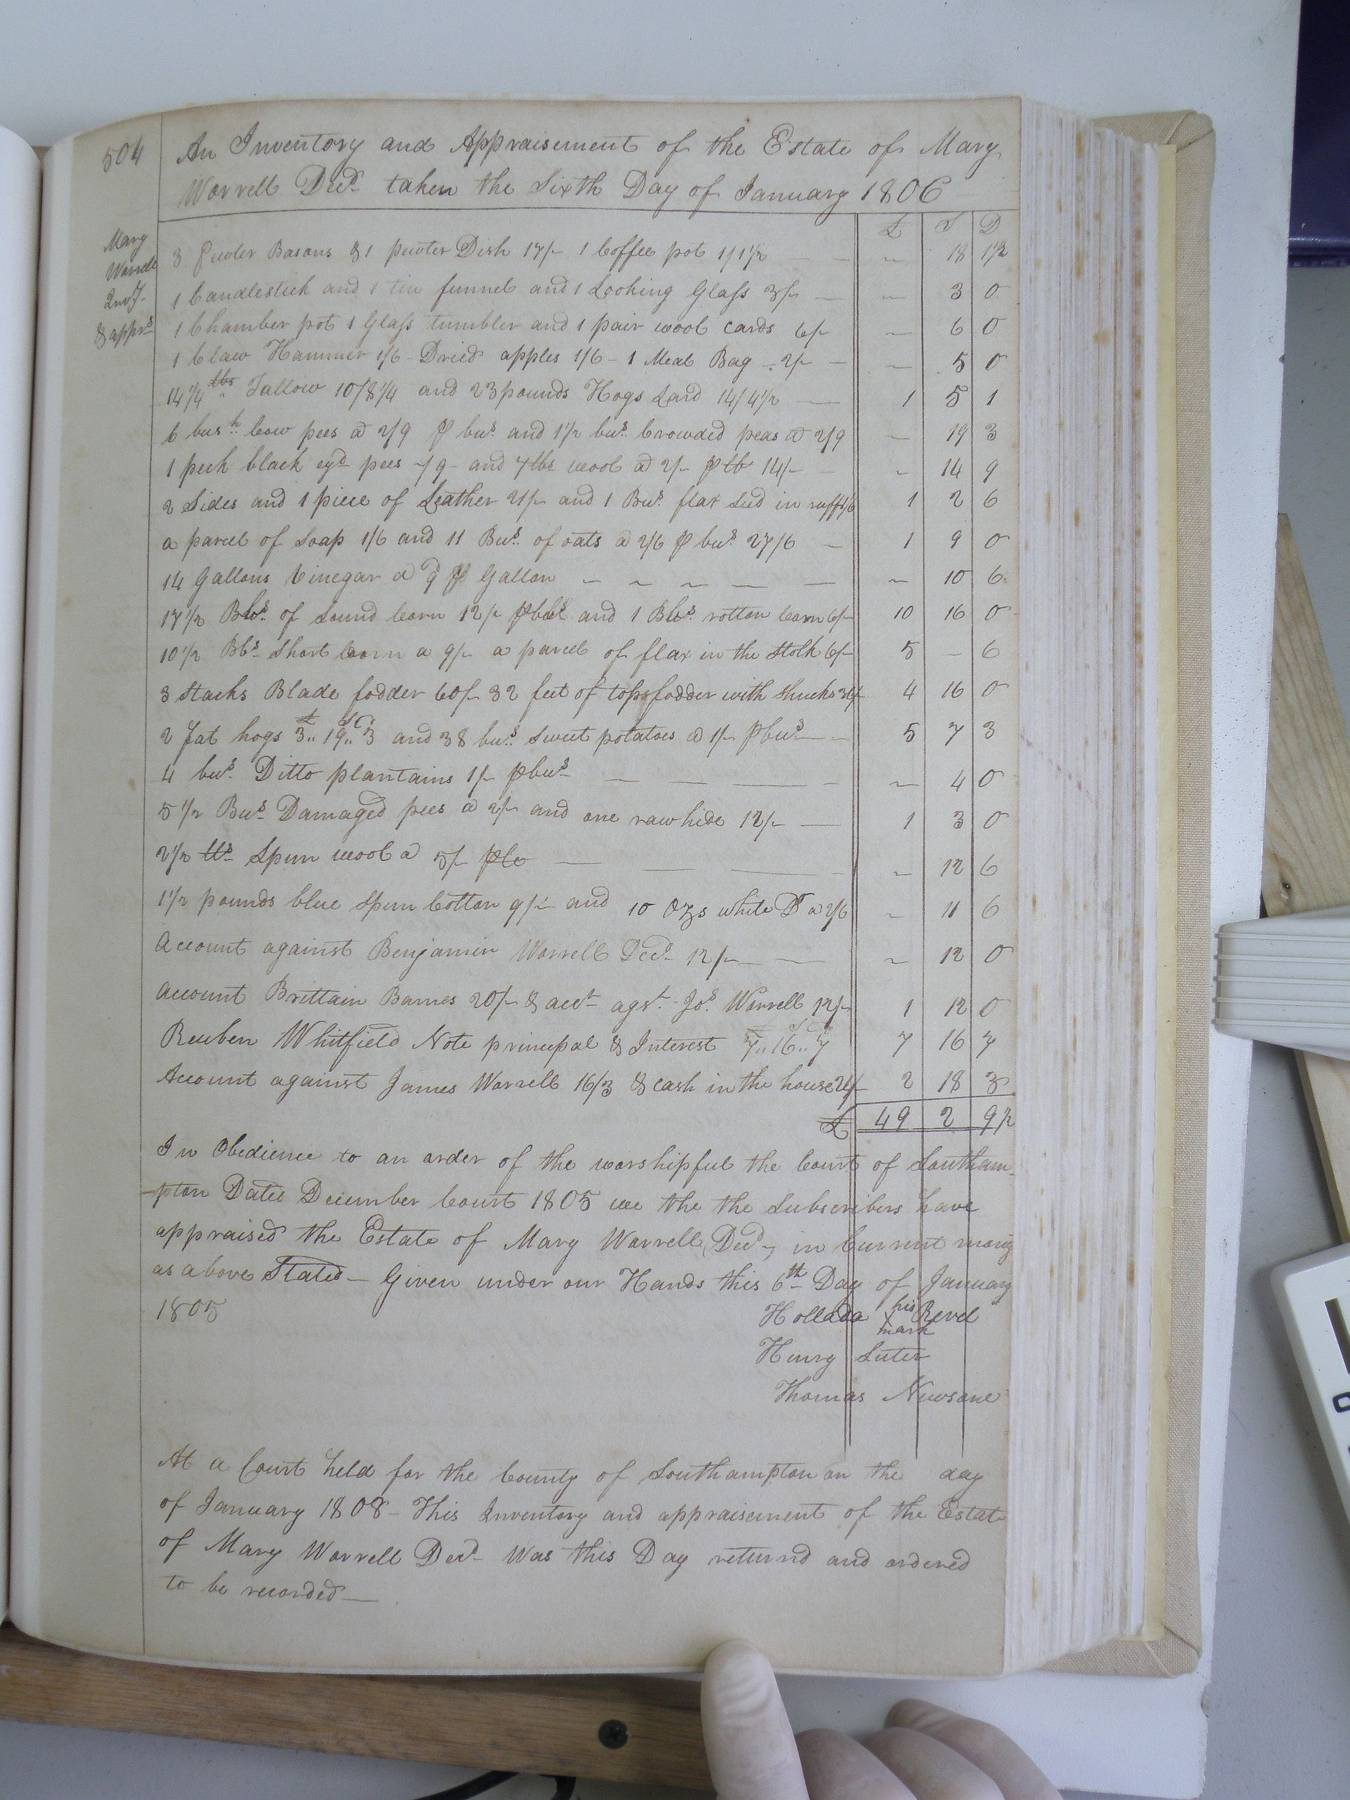 504
An Inventory and Appraisement of the Estate of Mary
Worrell Decd. taken the Sixth Day of January 1806
£ S D
Mary
Worrell
Invy.
& apprs.
3 Pewter Basons & 1 pewter Dish 17/- 1 Coffee pot 1/1½ — ~ 18 1½
1 Candlestick and 1 tin funnel and 1 Looking Glass 3/- — ~ 3 0
1 Chamber pot 1 Glass tumbler and 1 pair wool cards 6/- ~ 6 0
1 Claw Hammer 1/6 - Dried apples 1/6 - 1 Meal Bag - 2/- — ~ 5 0
14¼ lbs Tallow 10/8¼ and 23 pounds Hogs Lard 14/4½ — 1 5 1
6 bush. Cow pees a 2/9 P bus. and 1½ bus. Crowded peas a 2/9 ~ 19 3
1 peck black eyd pees -/9 - and 7 lbs wool a 2/- P lb 14/- ~ 14 9
2 Sides and 1 piece of Leather 21/- and 1 Bus. flax seed in ruff 1/6 1 2 6
a parcel of Soap 1/6 and 11 Bus. of oats a 2/6 P bus. 27/6 — 1 9 0
14 Gallons Vinegar a 9 P Gallon — ~ ~ — — ~ 10 6
17½ Bbs. of Sound Corn 12/- P bbl and 1 Bb. rotton Corn 6/- 10 16 0
10½ Bbs. Short Corn a 9/- a parcel of flax in the Stolk 6/- 5 — 6
3 Stacks Blade fodder 60/- 32 feet of tops fodder with shucks 36/- 4 16 0
2 fat hogs £3.. S19.. D3 and 38 bus. Sweet potatoes a 1/- P bus. — 5 7 3
4 bus. Ditto plantains 1/- P bus. — — — ~ 4 0
5½ Bus. Damaged pees a 2/- and one raw hide 12/- — 1 3 0
2½ lbs. Spun wool a 5/- P lb — — — ~ 12 6
1½ pounds blue Spun Cotton 9/- and 10 Ozs white Do a 2/6 ~ 11 6
Account against Benjamin Worrell Decd. 12/- — — ~ 12 0
account Brittain Barnes 20/- & acct. agst. Jos. Worrell 12/- 1 12 0
Reuben Whitfield Note principal & Interest £7.. S16.. D7 7 16 7
Account against James Worrell 16/3 & cash in the house 2 18 3
£ 49 2 9½
In Obedience to an order of the worshipful the Court of Southam-
-pton Dated December Court 1805 we the the Subscribers have
appraised the Estate of Mary Worrell Decd., in Current money
as above Stated — Given under our Hands this 6th Day of January
1805
Hollada his X mark Revel
Henry Luter
Thomas Newsane
At a Court held for the County of Southampton on the day
of January 1808 - This Inventory and appraisement of the Estate
of Mary Worrell Decd. was this Day returnd and ordered
to be recorded —